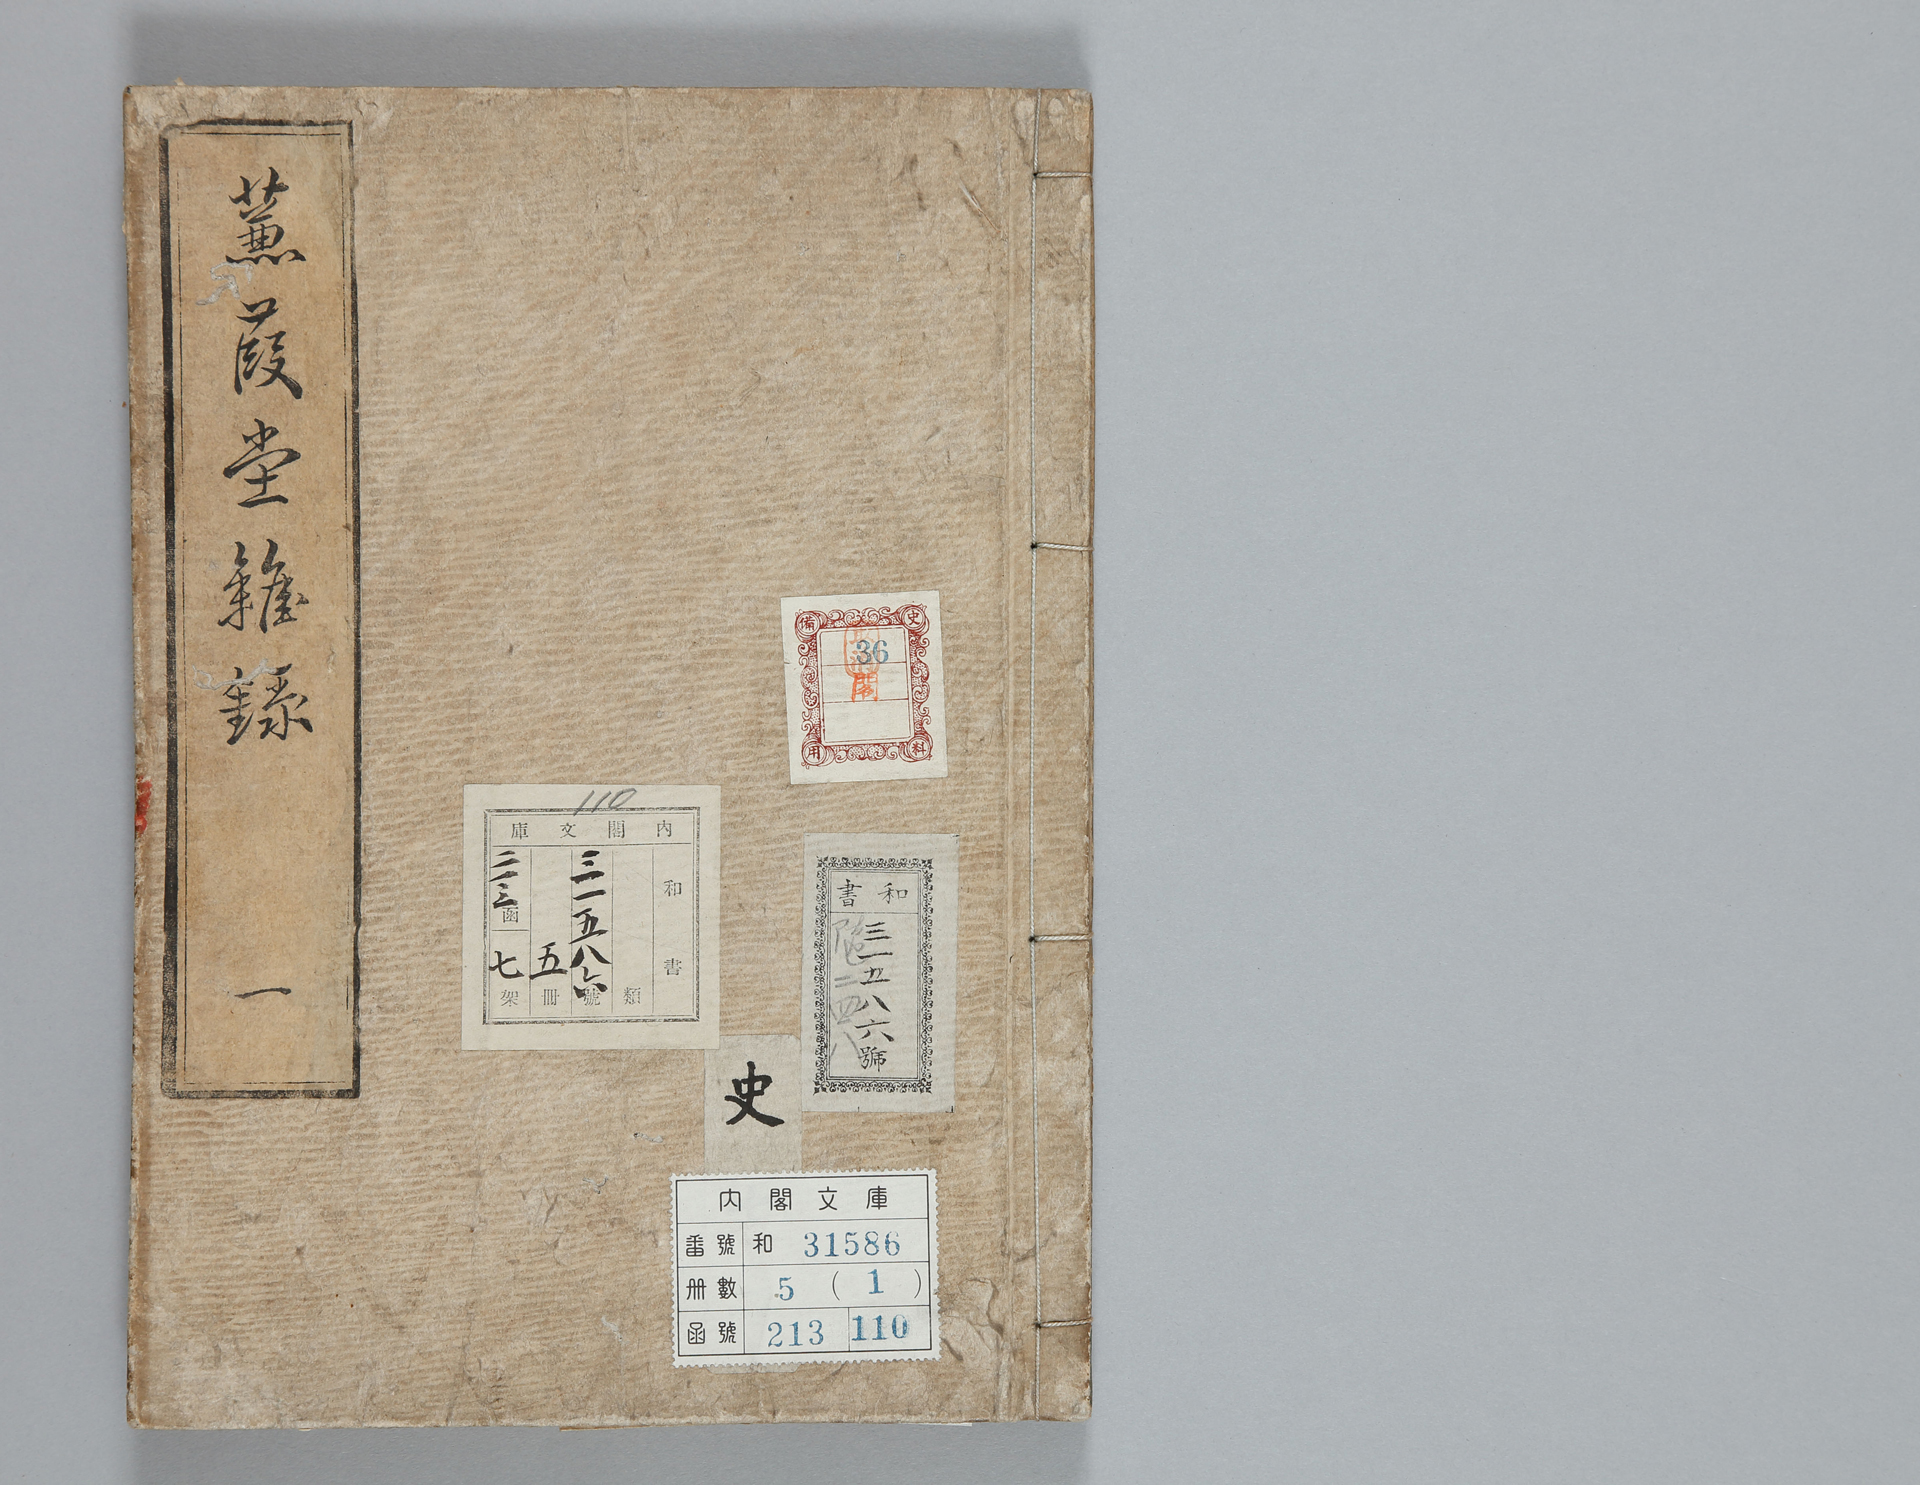 蒹葭堂雜録 一
史料備用
36
110
内閣文庫
和書
類
三一五八六號
五冊
二一三函 七架
和書
三一五八六號
史
内閣文庫
番號 和 31586
册數 5 (1)
函號 213 110